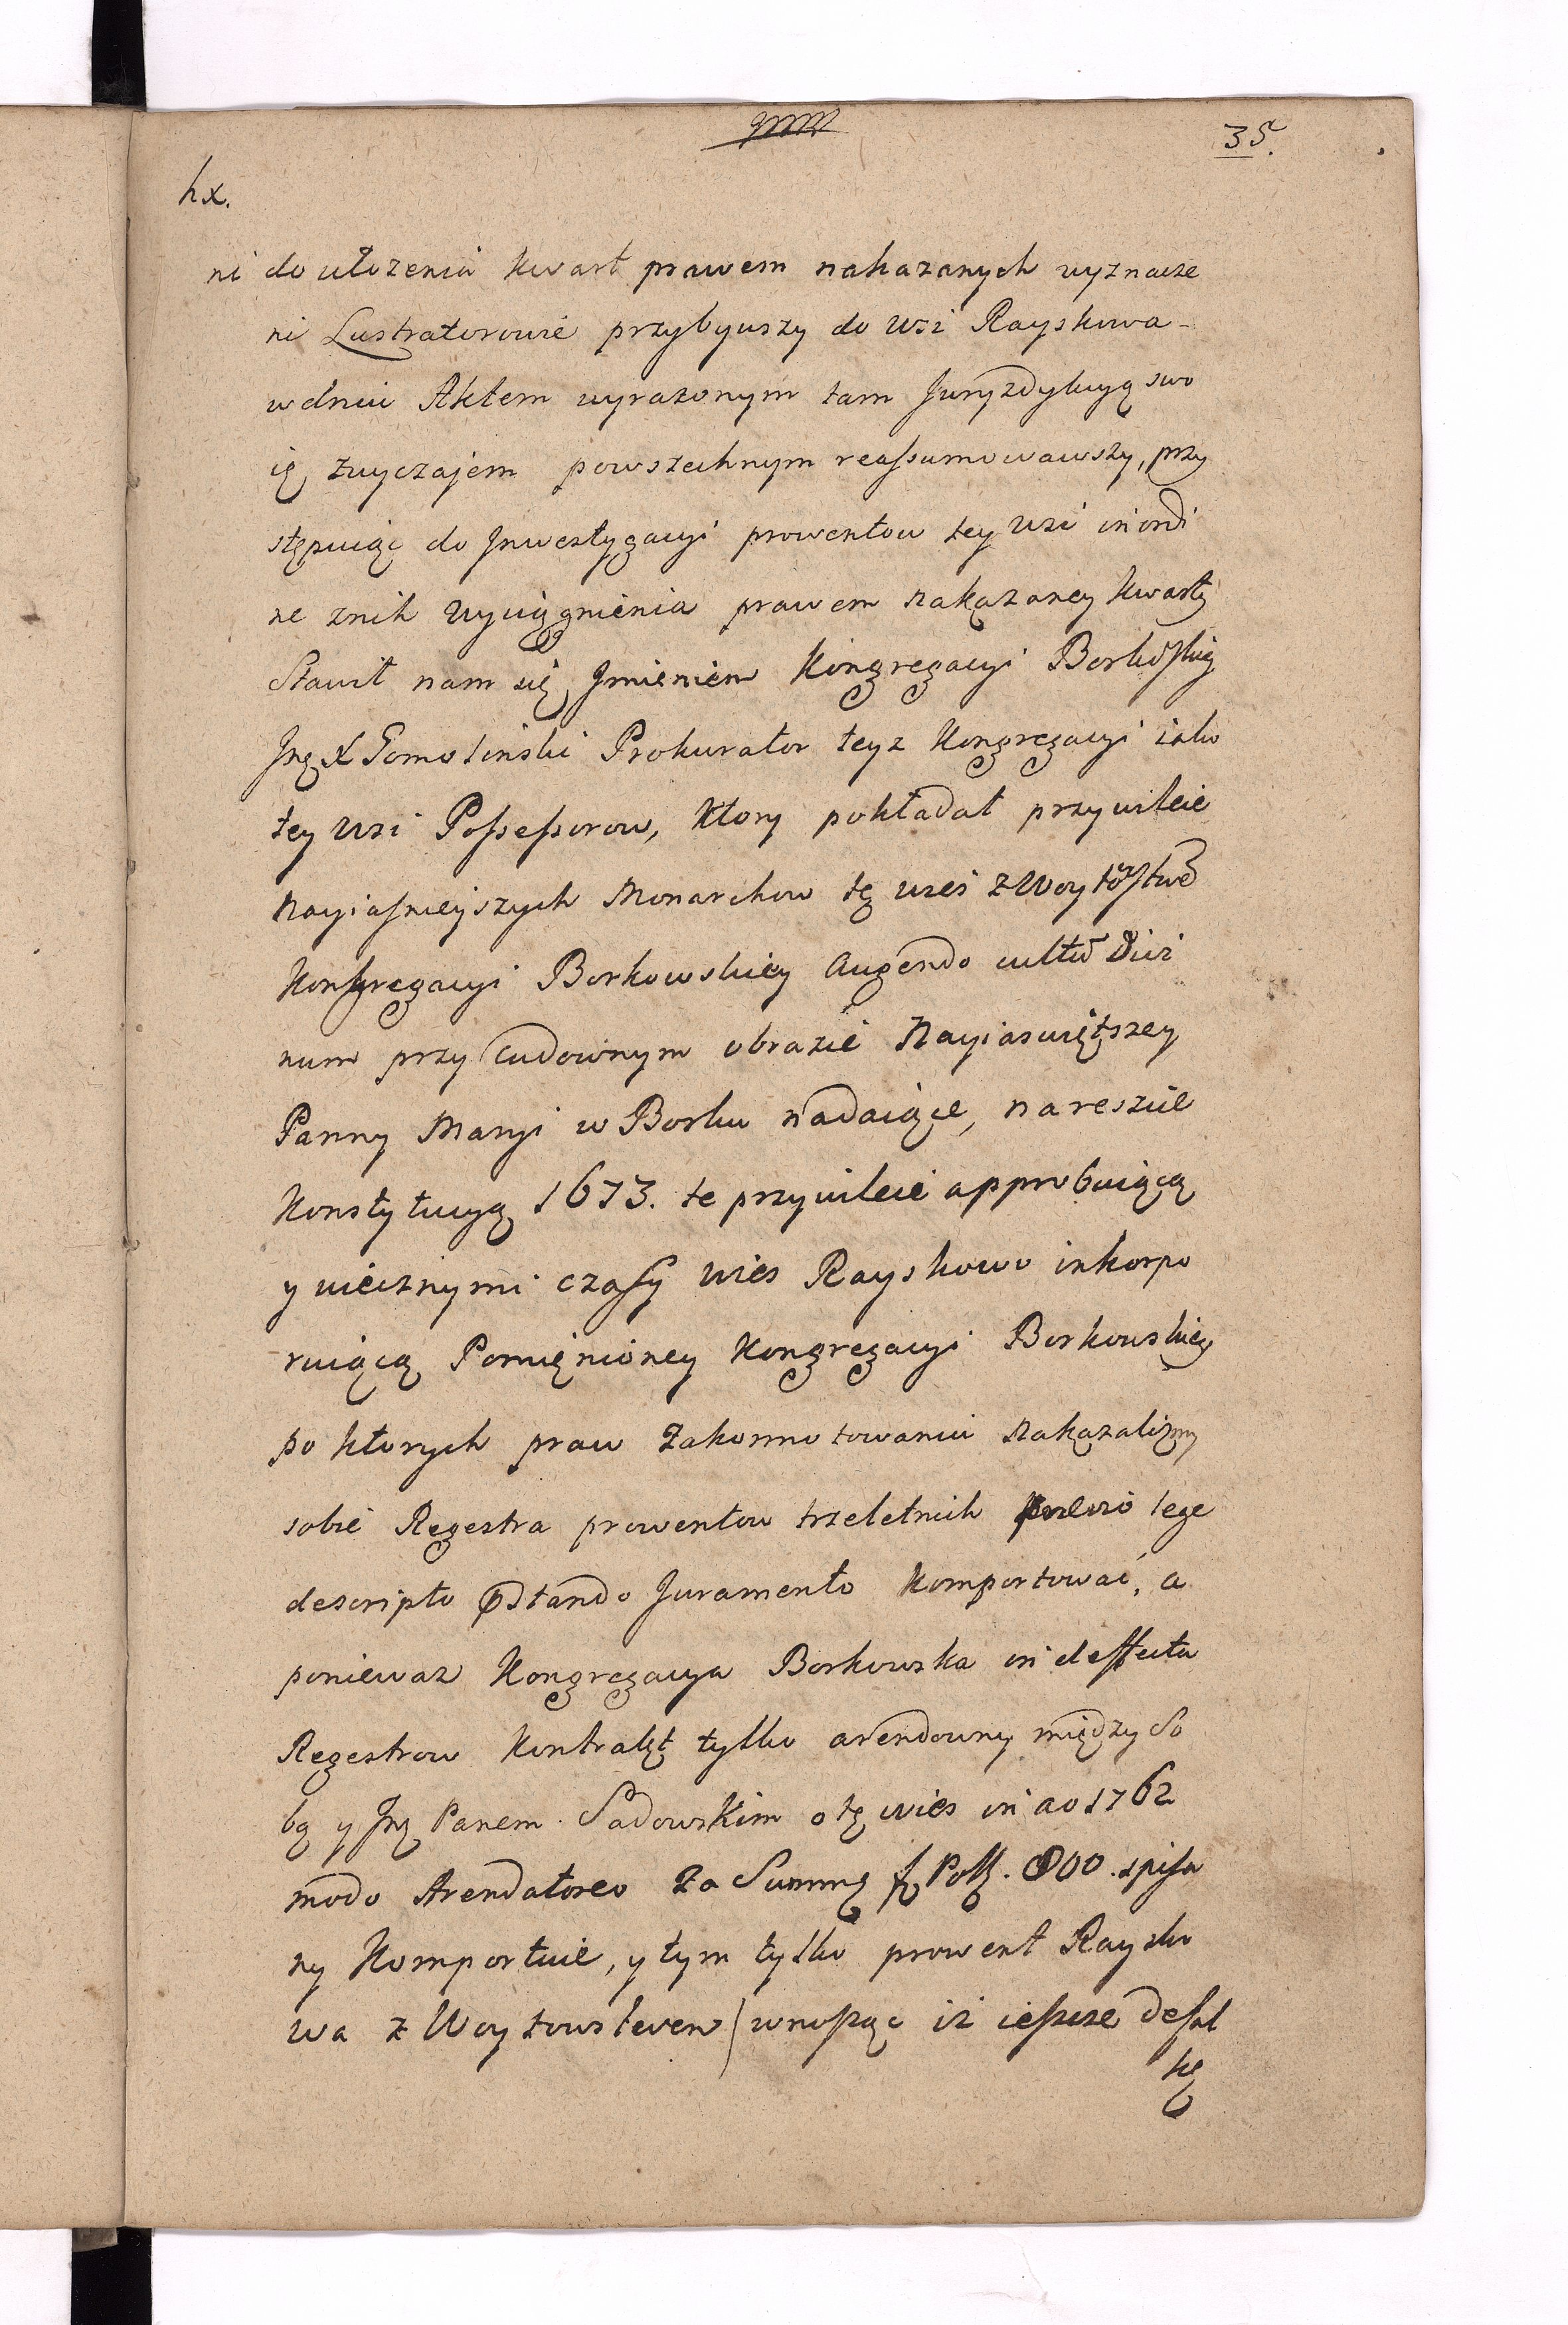 35.
hx.
ni do ułozenia kwart prawem nakazanych wyznacze
ni Lustratorowie przybywszy do wsi Rayskowa-
w dniu Aktem wyrazonym tam Juryzdykcyą swo
ię zwyczajem powszechnym reassumowawszy, przy
stępuiąc do Jnwestygacyi prowentow tey wsi in ordi
ne znih wyciągnienia prawem nakazaney kwarty
Stawił nam się Jmieniem Kongregacyi Borkoskiey
Jmę X Gomolinski Prokurator teyz Kongregacyi iako
tey wsi Possessorow, ktory pokładał przywileie
Nayiasnieyszych Monarchow tę wieś z Woytostwē
Kongregacyi Borkowskiey augendo cultū Divi
num przy cudownym obrazie Nayiaswiętszey
Panny Maryi w Borku nadaiące, nareszcie
Konstytucyą 1673. te przywileie approbuiącą
y wiecznymi czasy wies Rayskowo inkorpo
ruiącą Pomięnioney Kongregacyi Borkowskiey
po ktorych praw zakonnotowaniu nakazalismy
sobie Regestra prowentow trzeletnich lege
descripto pstando Juramento komportować, a
poniewaz Kongregacya Borkowska in deffectu
Regestrow Kontrakt tylko arendowny między So
bą y Jmę Panem Sadowskim o tę wies in ao 1762
modo Arendatoreo za Summę f Polh. 800. spisa
ny Komportuie, y tym tylko prowent Raysko
wa z Woytowstwem / wnosząc iz ieszcze defal
kę